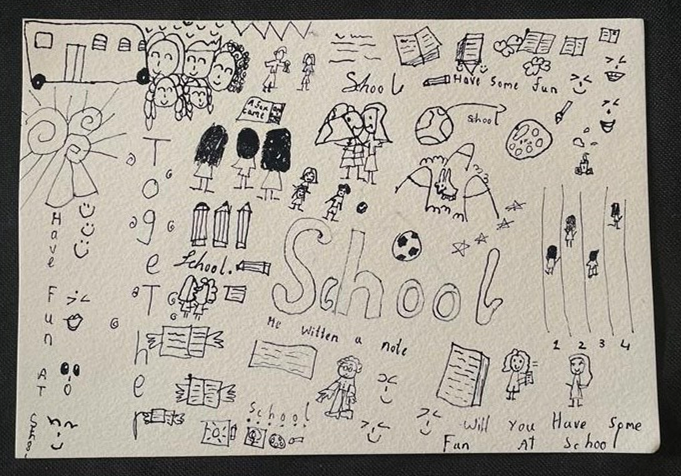 Shool
Have Some fun
A fun
Game
school
Together
Have Fun AT Shool
School.
School
He written a note
1 2 3 4
School
Will you Have Some
Fun At School